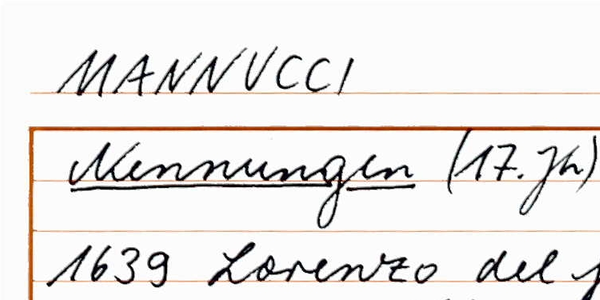 MANNUCCI
Nennungen (17. Jh)
1639 Lorenzo del